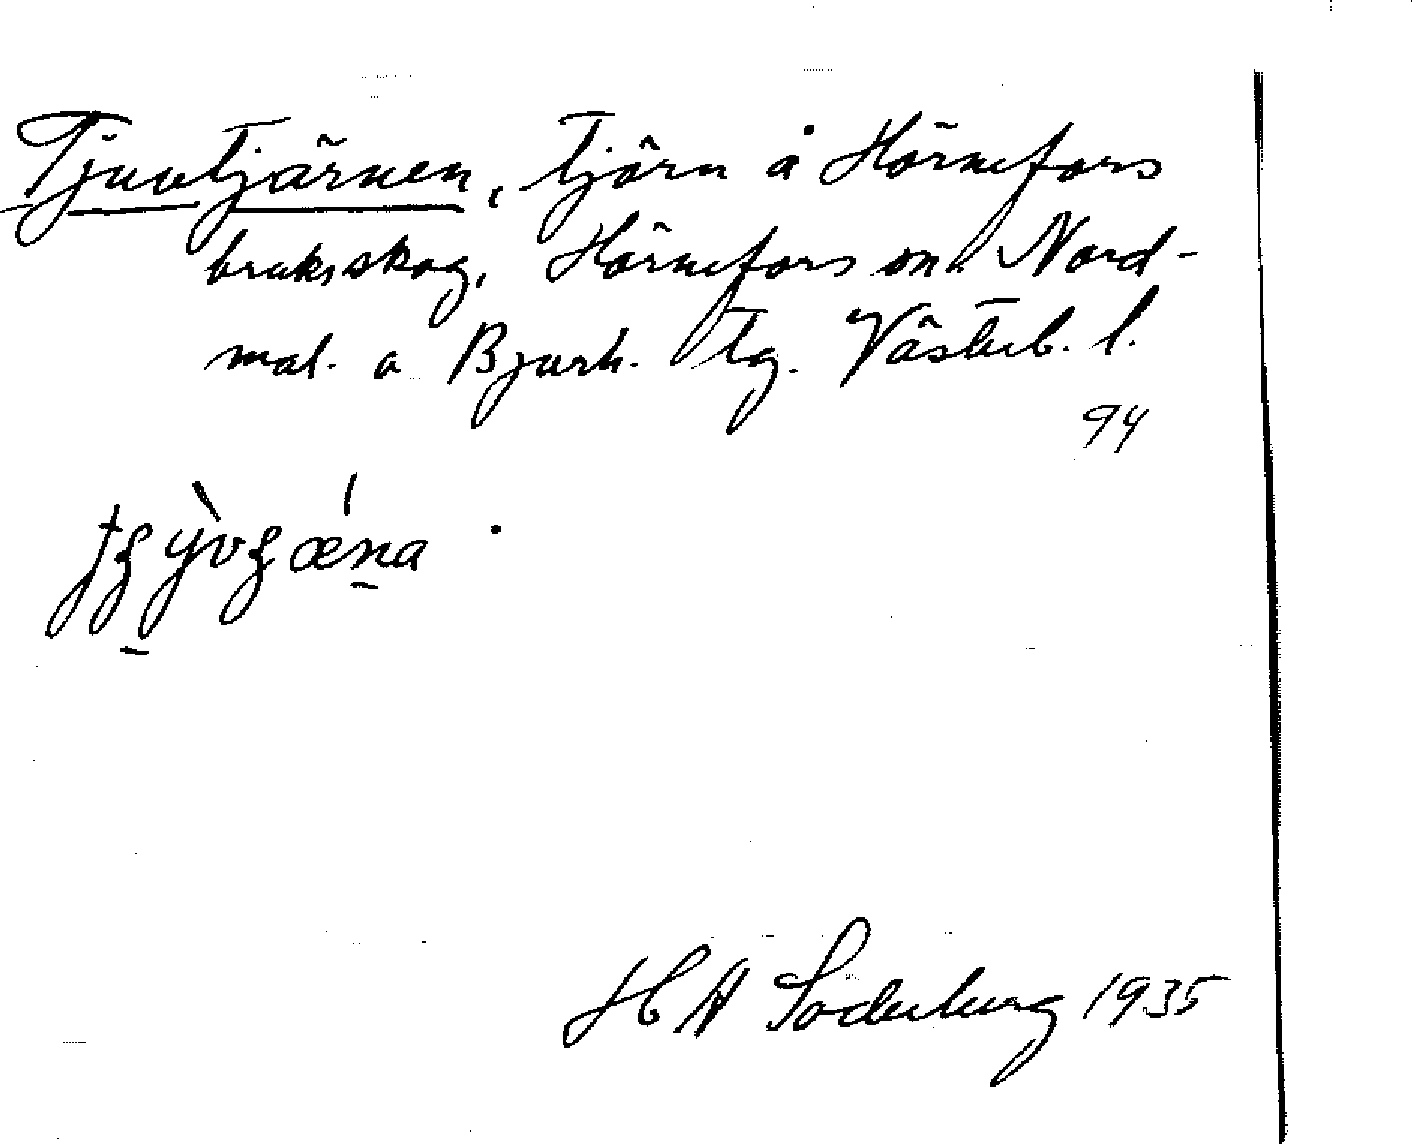 Tjuvtjärnen, tjärn å Hörnefors
bruksskog, Hörnefors sn. Nord-
mal. o Bjurh. tg. Västerb. l.
94
H A Söderberg 1935